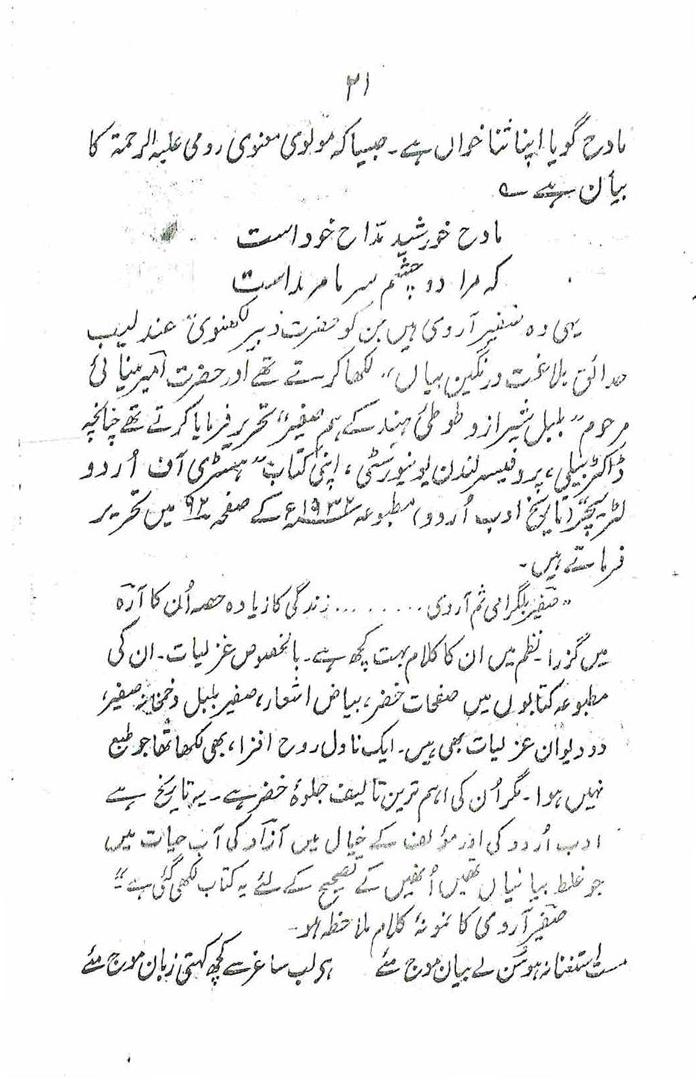 ۲۱
مادح گویا اپنا ثنا خواں ہے۔ جیسا کہ مولوی معنوی رومی علیہ الرحمۃ کا
بیان ہے ؎
مادح خورشید مدّاح خود است
کہ مرا دو چشم سر نامرمداست
یہی وہ صفیر آروی ہیں جن کو حضرت دبیر لکھنوی "عندلیب
حدائق بلاغت و رنگین بیاں" لکھا کرتے تھے اور حضرت امیر مینائی
مرحوم "بلبل شیراز و طوطیٔ ہند کے ہم صفیر" تحریر فرمایا کرتے تھے چنانچہ
ڈاکٹر بیلی، پروفیسر لندن یونیورسٹی، اپنی کتاب "ہسٹری آف اُردو
لٹریچر" (تاریخ ادب اُردو) مطبوعہ ۱۹۳۲ء کے صفحہ ۹۲ میں تحریر
فرماتے ہیں۔
"صفیر بلگرامی ثم آروی ......... زندگی کا زیادہ حصہ اُن کا آرہ
میں گزرا۔ نظم میں ان کا کلام بہت کچھ ہے۔ بالخصوص غزلیات۔ ان کی
مطبوعہ کتابوں میں صفحات خضر، بیاض اشعار، صفیر بلبل و خمخانہ صفیر،
دو دیوان غزلیات بھی ہیں۔ ایک ناول روح افزا، بھی لکھا تھا جو طبع
نہیں ہوا۔ مگر اُن کی اہم ترین تالیف جلوۂ خضر ہے۔ یہ تاریخ ہے
ادب اُردو کی اور مؤلف کے خیال میں آزاد کی آب حیات میں
جو غلط بیانیاں تھیں اُنھیں کے تصحیح کے لئے یہ کتاب لکھی گئی ہے"
صفیر آروی کا نمونۂ کلام ملاحظہ ہو۔
مستغنانہ ہو سُن لے بیان موج مئے ہر لب ساغر سے کچھ کہتی زبان موج مئے